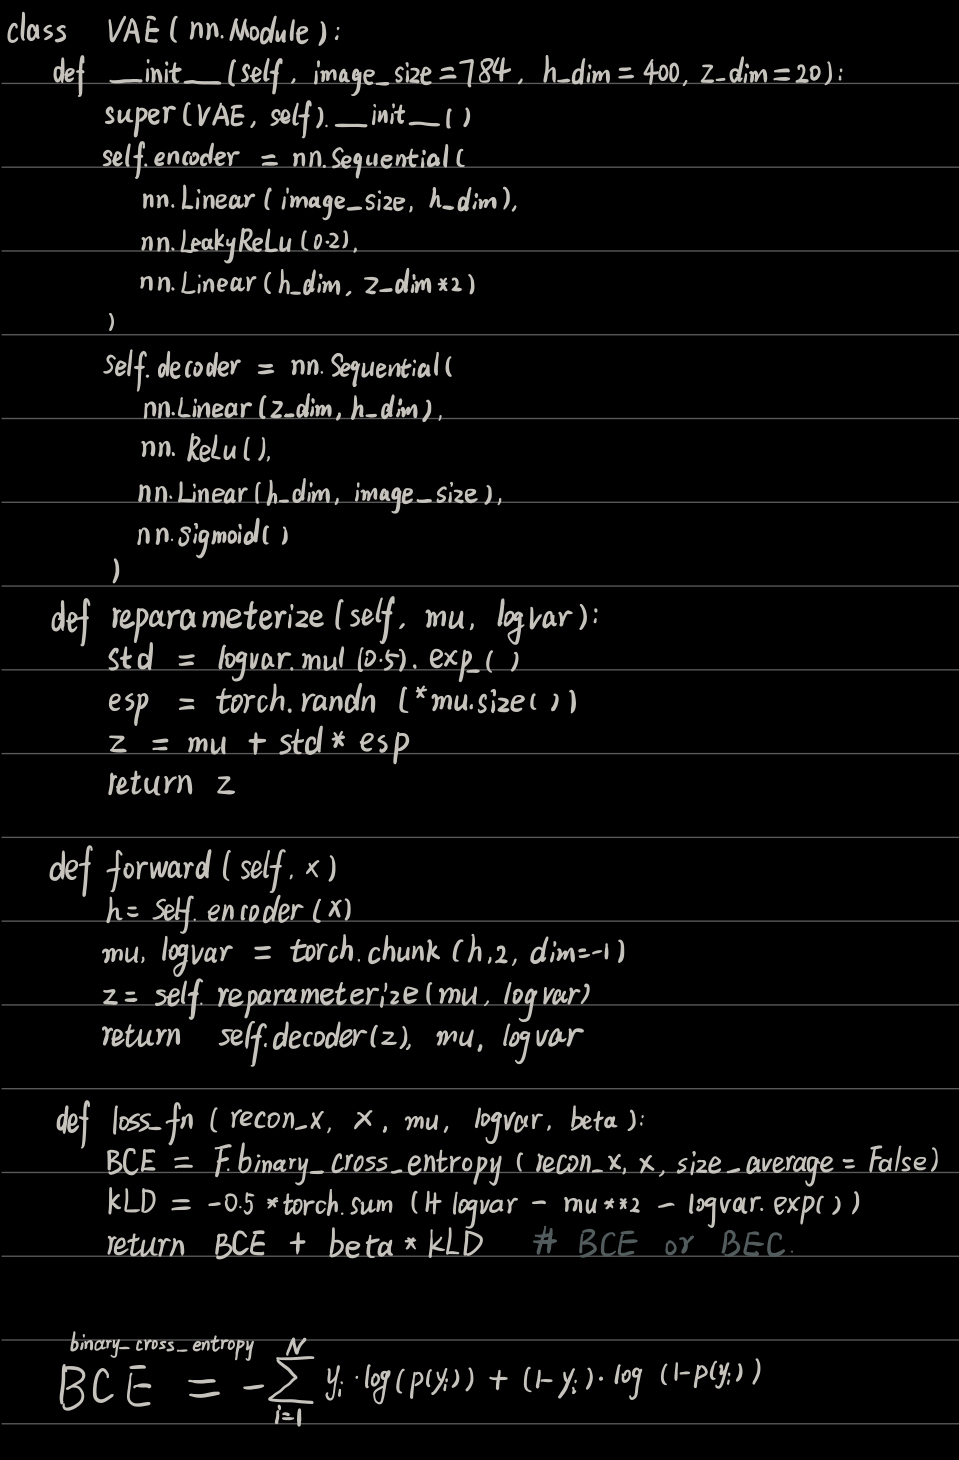 class VAE(nn.Module):
def __init__(self, image_size=784, h_dim=400, z_dim=20):
super(VAE, self).__init__()
self.encoder = nn.Sequential(
nn.Linear(image_size, h_dim),
nn.LeakyReLu(0.2),
nn.Linear(h_dim, z_dim*2)
)
self.decoder = nn.Sequential(
nn.Linear(z_dim, h_dim),
nn.ReLu(),
nn.Linear(h_dim, image_size),
nn.sigmoid()
)
def reparameterize(self, mu, logvar):
std = logvar.mul(0.5).exp_()
esp = torch.randn(*mu.size())
z = mu + std * esp
return z
def forward(self, x)
h = self.encoder(x)
mu, logvar = torch.chunk(h, 2, dim=-1)
z = self.reparameterize(mu, logvar)
return self.decoder(z), mu, logvar
def loss_fn(recon_x, x, mu, logvar, beta):
BCE = F.binary_cross_entropy(recon_x, x, size_average=False)
KLD = -0.5 * torch.sum(1+ logvar - mu**2 - logvar.exp())
return BCE + beta * KLD # BCE or BEC.
binary_cross_entropy
BCE = -∑_{i=1}^{N} y_i · log(p(y_i)) + (1-y_i) · log(1-p(y_i))